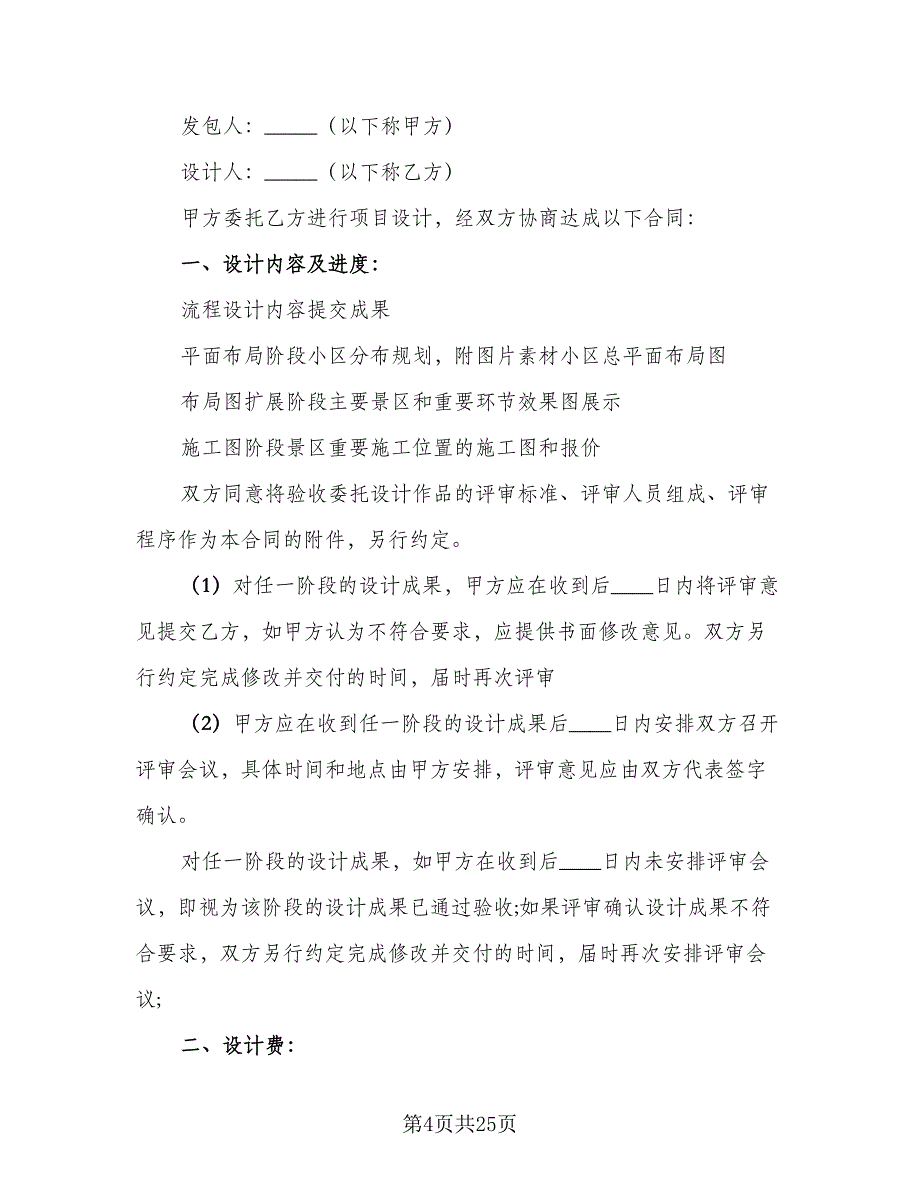 发包人：_____（以下称甲方）
设计人：_____（以下称乙方）
甲方委托乙方进行项目设计，经双方协商达成以下合同：
一、设计内容及进度：
流程设计内容提交成果
平面布局阶段小区分布规划，附图片素材小区总平面布局图
布局图扩展阶段主要景区和重要环节效果图展示
施工图阶段景区重要施工位置的施工图和报价
双方同意将验收委托设计作品的评审标准、评审人员组成、评审
程序作为本合同的附件，另行约定。
（1）对任一阶段的设计成果，甲方应在收到后____日内将评审意
见提交乙方，如甲方认为不符合要求，应提供书面修改意见。双方另
行约定完成修改并交付的时间，届时再次评审
（2）甲方应在收到任一阶段的设计成果后____日内安排双方召开
评审会议，具体时间和地点由甲方安排，评审意见应由双方代表签字
确认。
对任一阶段的设计成果，如甲方在收到后____日内未安排评审会
议，即视为该阶段的设计成果已通过验收;如果评审确认设计成果不符
合要求，双方另行约定完成修改并交付的时间，届时再次安排评审会
议;
二、设计费：
第4页共25页